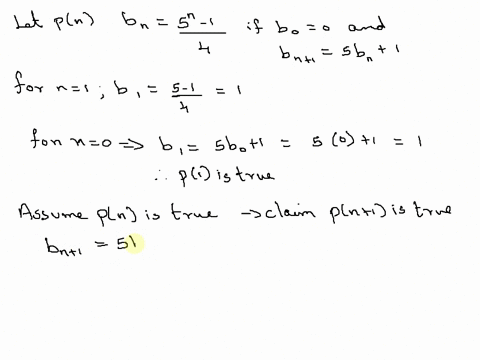 Let p(n) bₙ = (5ⁿ - 1)/4 if b₀ = 0 and
bₙ₊₁ = 5bₙ + 1
for n=1 ; b₁ = (5-1)/4 = 1
for n=0 ⇒ b₁ = 5b₀+1 = 5(0)+1 = 1
∴ p(1) is true
Assume p(n) is true → claim p(n+1) is true
bₙ₊₁ = 5